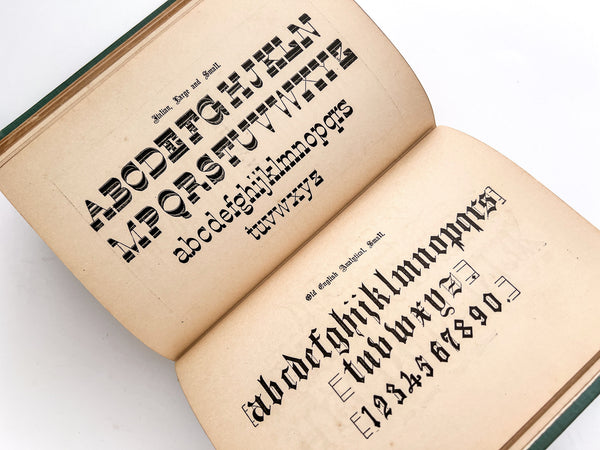 Italian, Large and Small.
ABCDEFGHJKLN
MPQRSTUVWXYZ
abcdefghijklmnopqrs
tuvwxyz
Old English Analytical, Small.
abcdefghijklmnopqrs
tuvwxyz.
1234567890